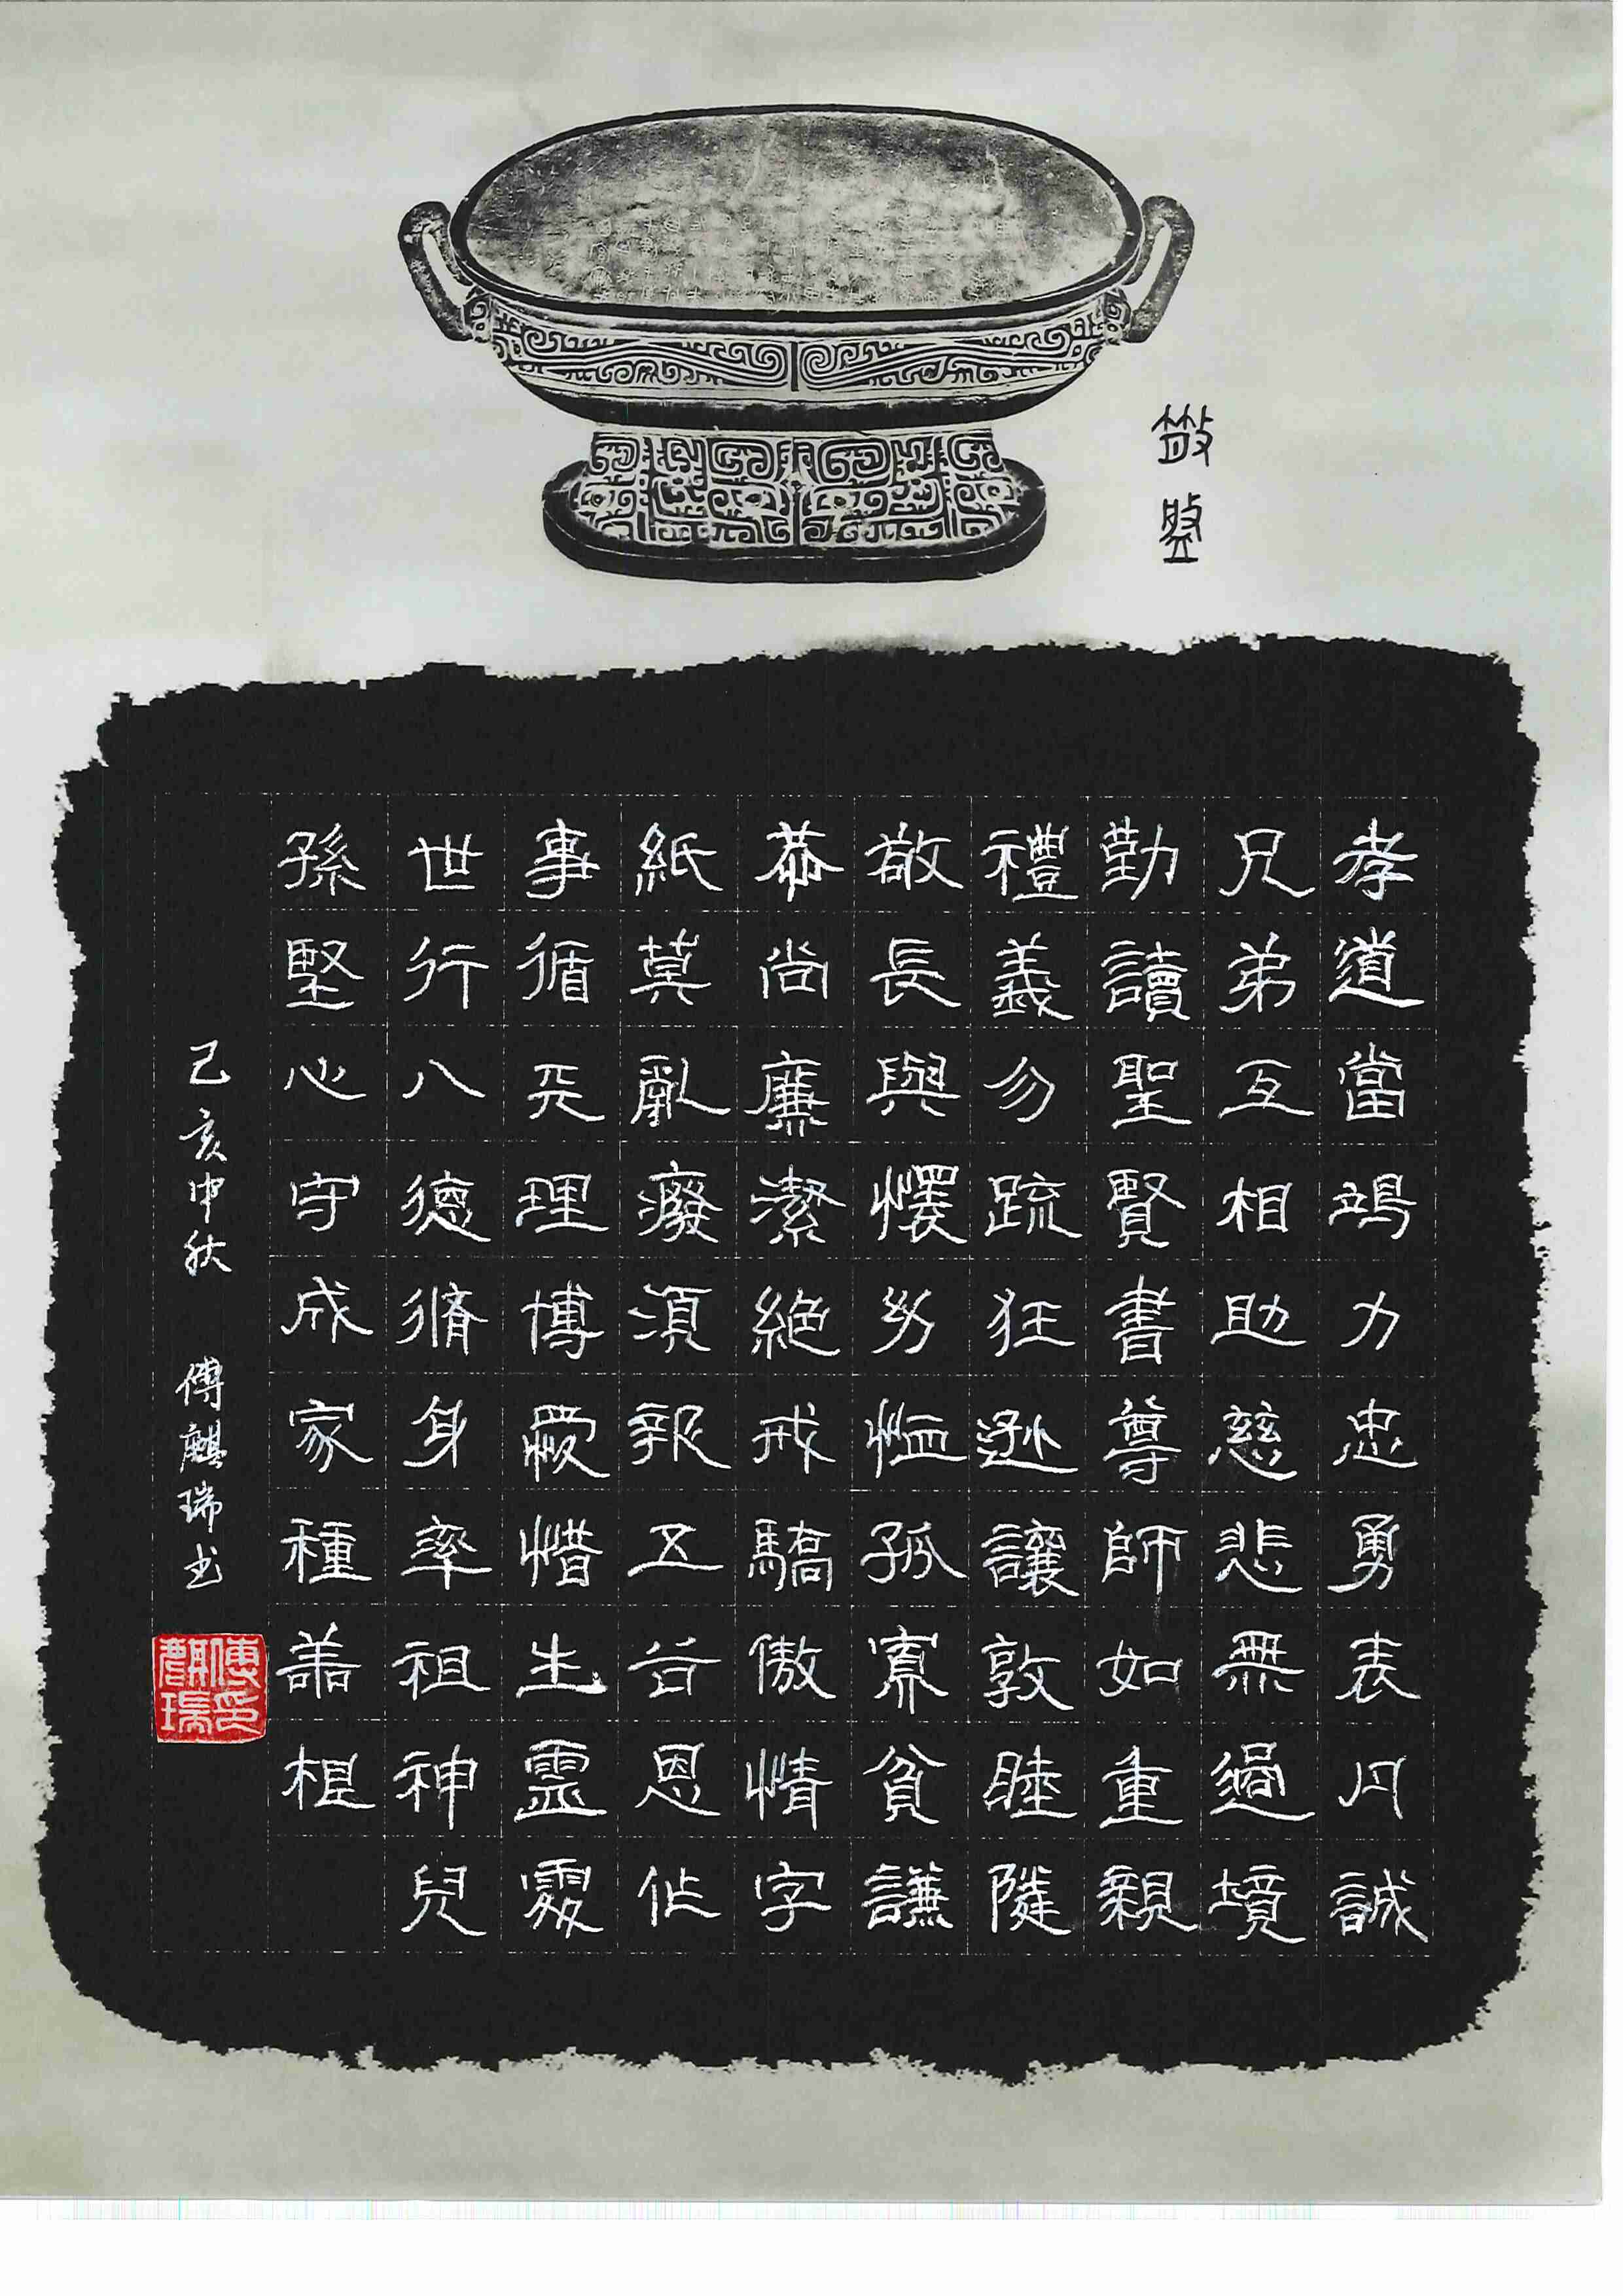 散盤
孝道當竭力忠勇表丹誠
兄弟互相助慈悲無過境
勤讀聖賢書尊師如重親
禮義勿疏狂遜讓敦睦隣
敬長與懷幼恤孤寡貧謙
恭尚廉潔絕戒驕傲情字
紙莫亂廢須報五谷恩作
事循天理博愛惜生靈處
世行八德脩身率祖神兒
孫堅心守成家種善根
己亥中秋 傅麒瑞书
傅印麒瑞